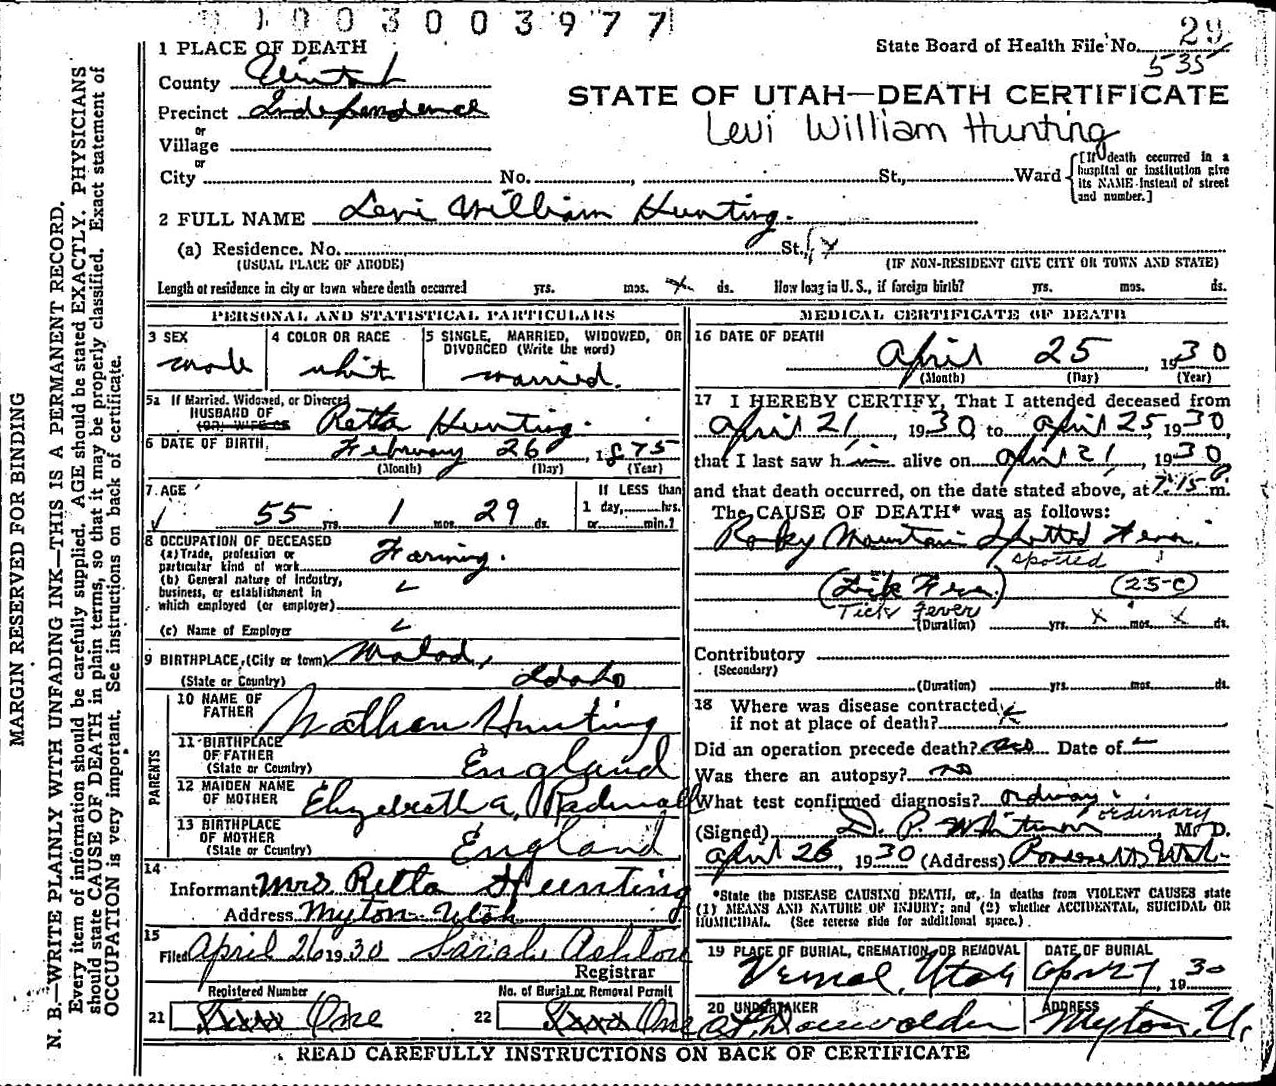 0003003977
1 PLACE OF DEATH
State Board of Health File No. 29
535
County Uintah
STATE OF UTAH—DEATH CERTIFICATE
Precinct Independence
Levi William Hunting
or
Village
or
City No. , St., Ward
[If death occurred in a hospital or institution give its NAME instead of street and number.]
2 FULL NAME Levi William Hunting.
(a) Residence. No. St.,
(USUAL PLACE OF ABODE) (IF NON-RESIDENT GIVE CITY OR TOWN AND STATE)
Length of residence in city or town where death occurred yrs. mos. x ds. How long in U.S., if foreign birth? yrs. mos. ds.
PERSONAL AND STATISTICAL PARTICULARS
3 SEX
male
4 COLOR OR RACE
white
5 SINGLE, MARRIED, WIDOWED, OR DIVORCED (Write the word)
married.
5a If Married, Widowed, or Divorced
HUSBAND OF
(OR) WIFE OF
Retta Hunting.
6 DATE OF BIRTH February 26, 1875
(Month) (Day) (Year)
7 AGE
55 yrs. 1 mos. 29 ds.
If LESS than
1 day, hrs.
or min.?
8 OCCUPATION OF DECEASED
(a) Trade, profession or
particular kind of work
Farming.
(b) General nature of Industry,
business, or establishment in
which employed (or employer)
(c) Name of Employer
9 BIRTHPLACE, (City or town) Malad,
(State or Country) Idaho
PARENTS
10 NAME OF FATHER
Nathan Hunting
11 BIRTHPLACE OF FATHER
(State or Country)
England
12 MAIDEN NAME OF MOTHER
Elizabeth A. Radmall
13 BIRTHPLACE OF MOTHER
(State or Country)
England
14
Informant Mrs Retta Hunting
Address Myton Utah
15
Filed April 26 1930 Sarah Ashton
Registrar
Registered Number
21 One
No. of Burial or Removal Permit
22 One
MEDICAL CERTIFICATE OF DEATH
16 DATE OF DEATH
April 25, 1930
(Month) (Day) (Year)
17 I HEREBY CERTIFY, That I attended deceased from
April 21, 1930, to April 25, 1930,
that I last saw him alive on April 21, 1930
and that death occurred, on the date stated above, at 7:15 P m.
The CAUSE OF DEATH* was as follows:
Rocky Mountain Spotted Fever.
spotted
(Tick Fever) (25-C)
Tick Fever
(Duration) yrs. x mos. x ds.
Contributory
(Secondary)
(Duration) yrs. mos. ds.
18 Where was disease contracted
if not at place of death?
Did an operation precede death? no Date of
Was there an autopsy? no
What test confirmed diagnosis? ordinary
ordinary
(Signed) D. P. Whitmore, M. D.
April 26, 1930 (Address) Roosevelt, Utah
*State the DISEASE CAUSING DEATH, or, in deaths from VIOLENT CAUSES state
(1) MEANS AND NATURE OF INJURY; and (2) whether ACCIDENTAL, SUICIDAL OR
HOMICIDAL. (See reverse side for additional space.)
19 PLACE OF BURIAL, CREMATION, OR REMOVAL
Vernal, Utah
DATE OF BURIAL
Apr 27, 1930
20 UNDERTAKER
ADDRESS
Myton, U.
READ CAREFULLY INSTRUCTIONS ON BACK OF CERTIFICATE
MARGIN RESERVED FOR BINDING
N. B.—WRITE PLAINLY WITH UNFADING INK—THIS IS A PERMANENT RECORD.
Every item of information should be carefully supplied. AGE should be stated EXACTLY. PHYSICIANS
should state CAUSE OF DEATH in plain terms, so that it may be properly classified. Exact statement of
OCCUPATION is very important. See instructions on back of certificate.